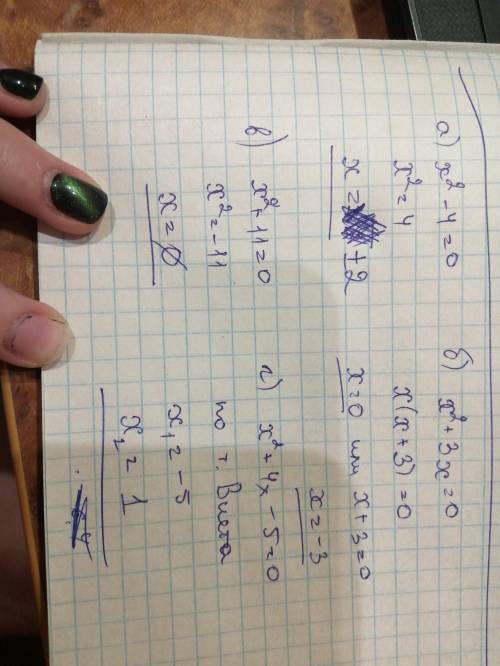 а) x² - 4 = 0
x² = 4
x = ±2
б) x² + 3x = 0
x(x+3) = 0
x=0 или x+3=0
x=-3
в) x² + 11 = 0
x² = -11
x = ∅
г) x² + 4x - 5 = 0
по т. Виета
x₁ = -5
x₂ = 1